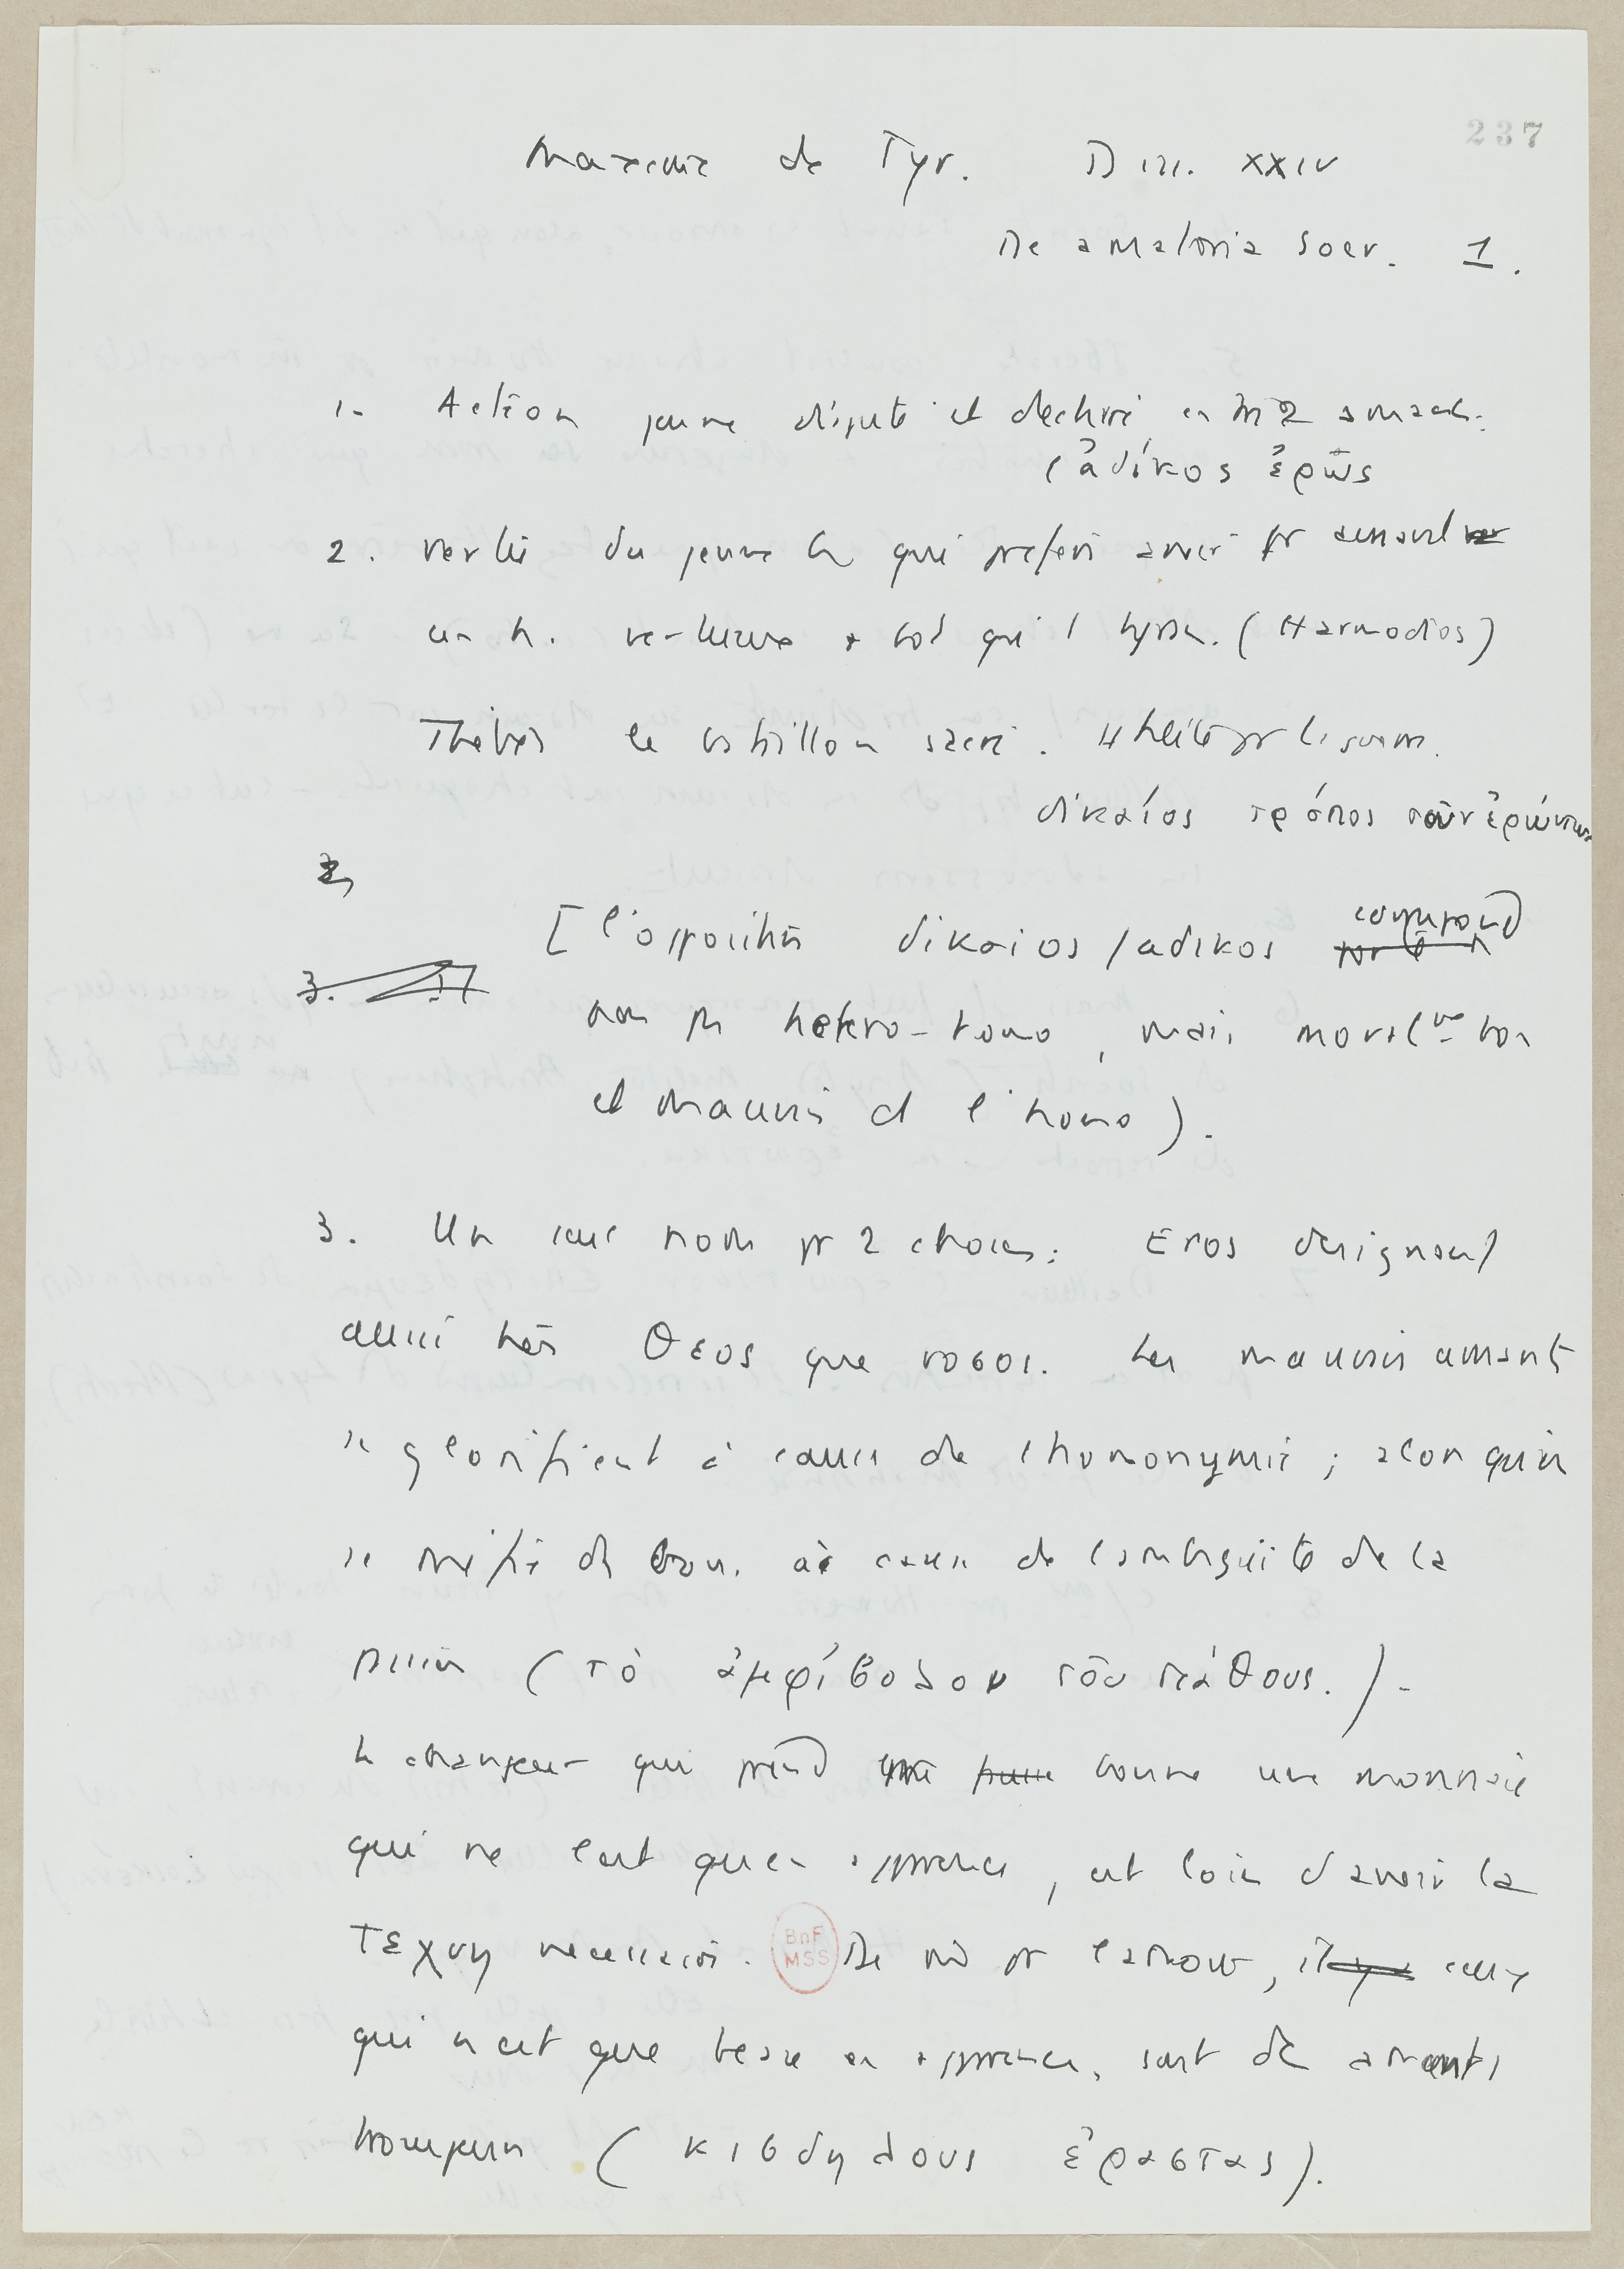 237
Maxime de Tyr. Diss. XXIV
De amatoria Socr. 1.
1- Actéon jeune disputé et déchiré en tr 2 amants.
(ἀδίκος ἔρως
2. Vertu du jeune h qui préfère avoir pr amant
un h. vertueux + tôt qu'1 tyran. (Harmodios)
Thèbes le bataillon sacré. pr les
δικαίος τρόπος τῶν ἐρώντων
2
[l'opposition dikaios/adikos correspond
3.
non pas hetero-homo, mais moralnt bon
et mauvais de l'homo).
3. Un seul nom pr 2 choses: Eros désignant
aussi bien θεος que νοσος. Les mauvais amants
se glorifient à cause de l'homonymie; alors qu'on
se méfie des bons à cause de l'ambiguité de la
passion (τὸ ἀμφίβολον τοῦ πάθους.) -
Le changeur qui prend comme bonne une monnaie
qui ne l'est qu'en apparence, est loin d'avoir la
τεχνη necessaire. De mê pr l'amour, il y a ceux
qui n'est que beau en apparence, sont des amants
trompeurs (κιβδηλους ἐραστας).
BnF
MSS